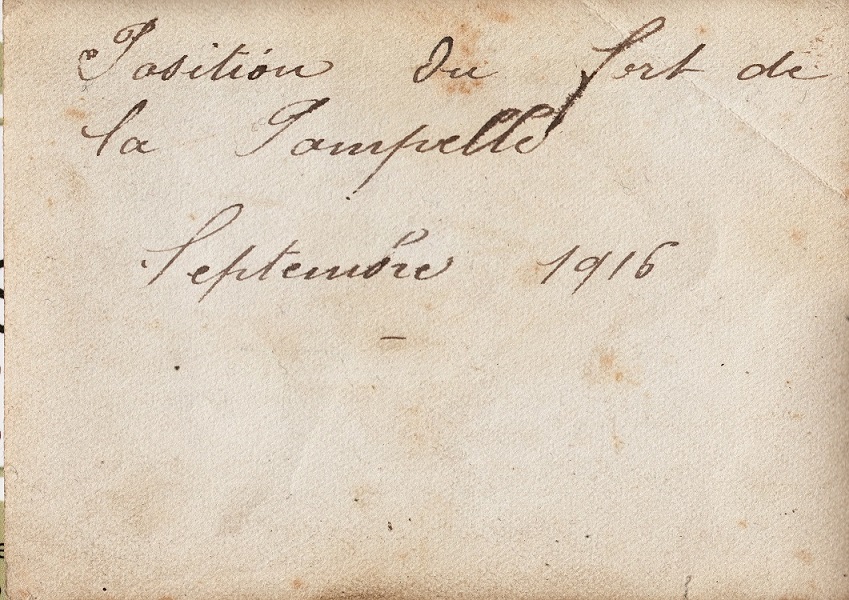 Position du fort de
la Pompelle
Septembre 1916